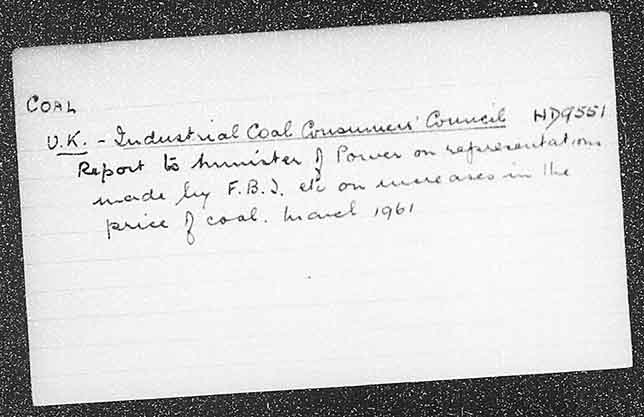 COAL
U.K. - Industrial Coal Consumers' Council HD9551
Report to Minister of Power on representations
made by F.B.I. etc on increases in the
price of coal. March 1961